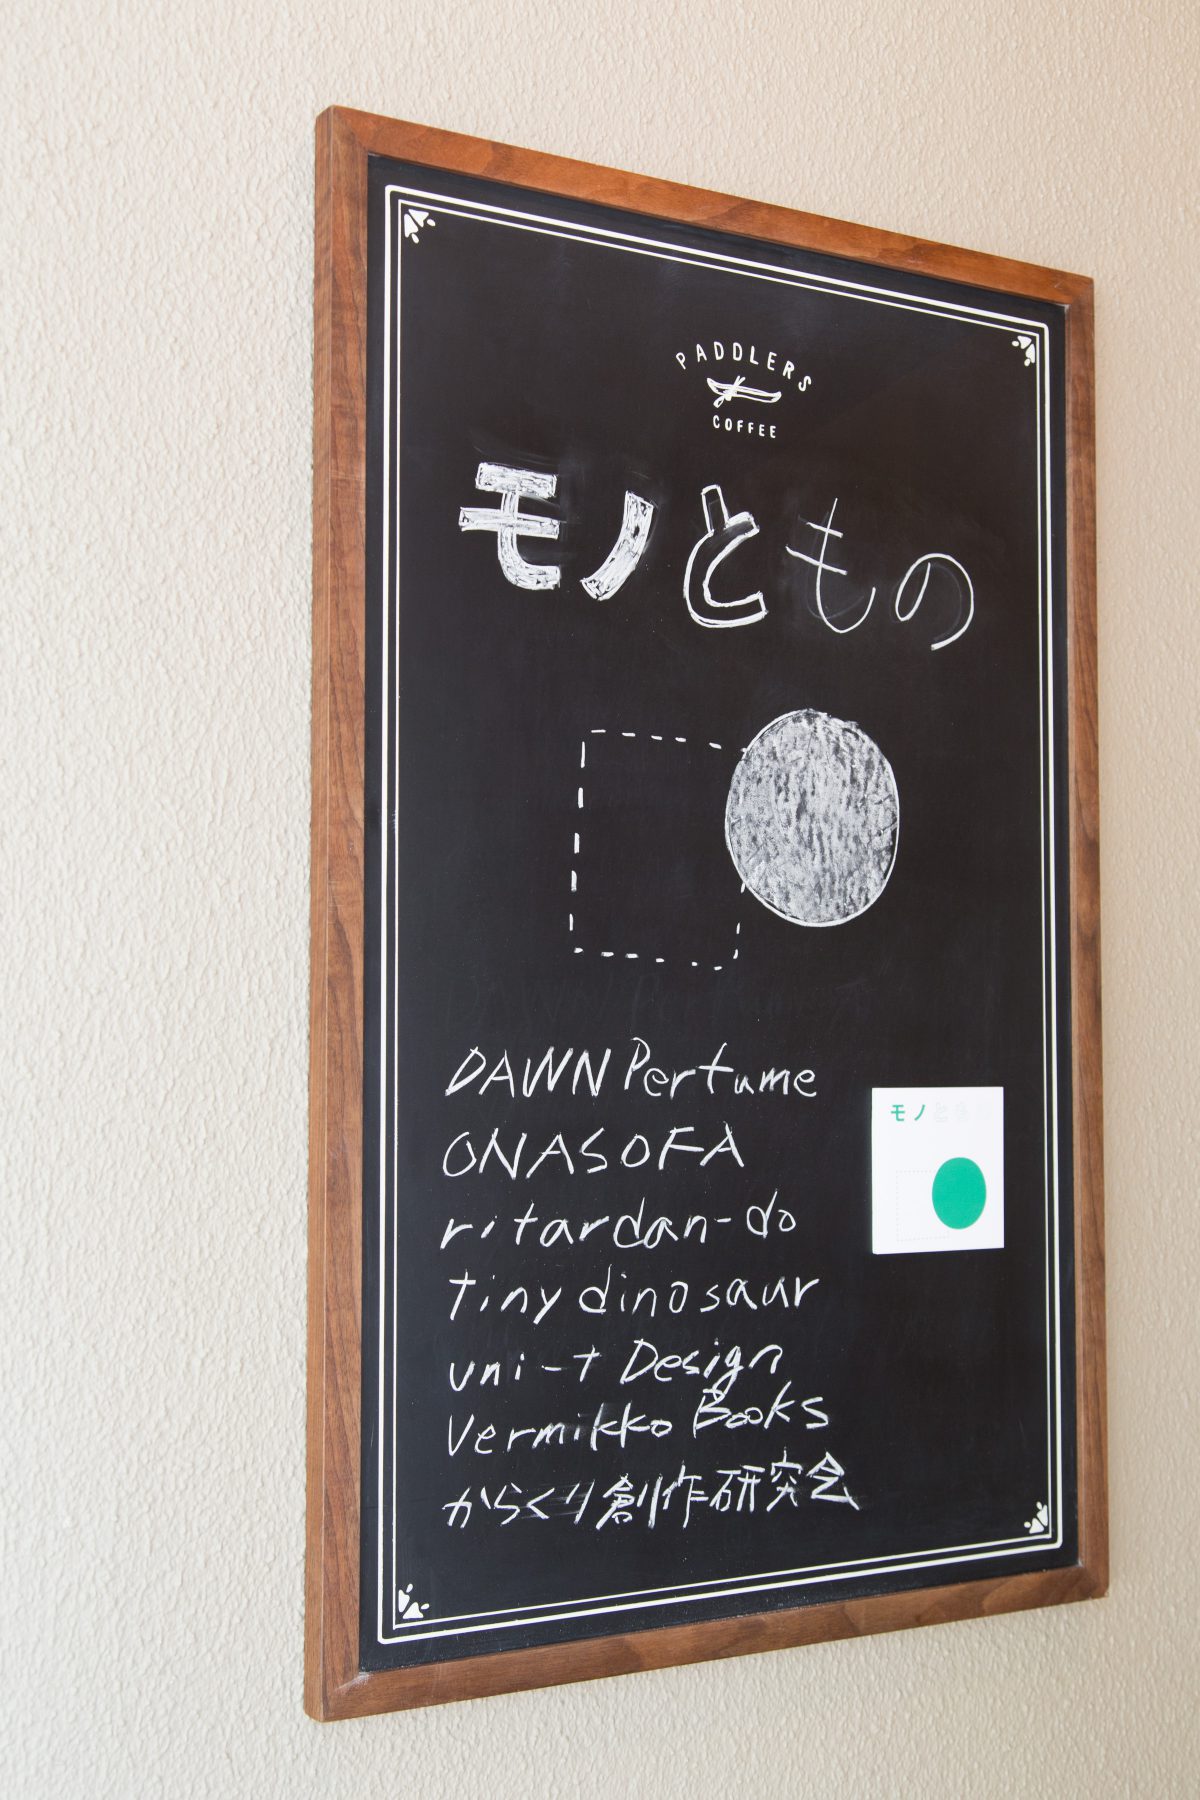 PADDLERS
COFFEE
モノともの
DAWN Perfume
ONASOFA
ritardan-do
tiny dinosaur
モノとも
uni-t Design
Vermikko Books
からくり創作研究会